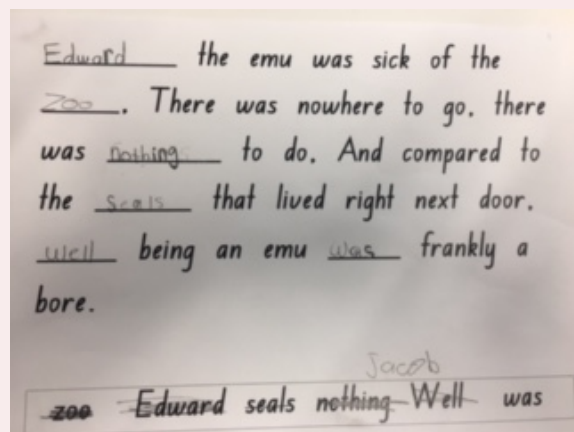 Edward the emu was sick of the
Zoo. There was nowhere to go. there
was nothing to do. And compared to
the seals that lived right next door.
well being an emu was frankly a
bore.
Jacob
zoo Edward seals nothing Well was